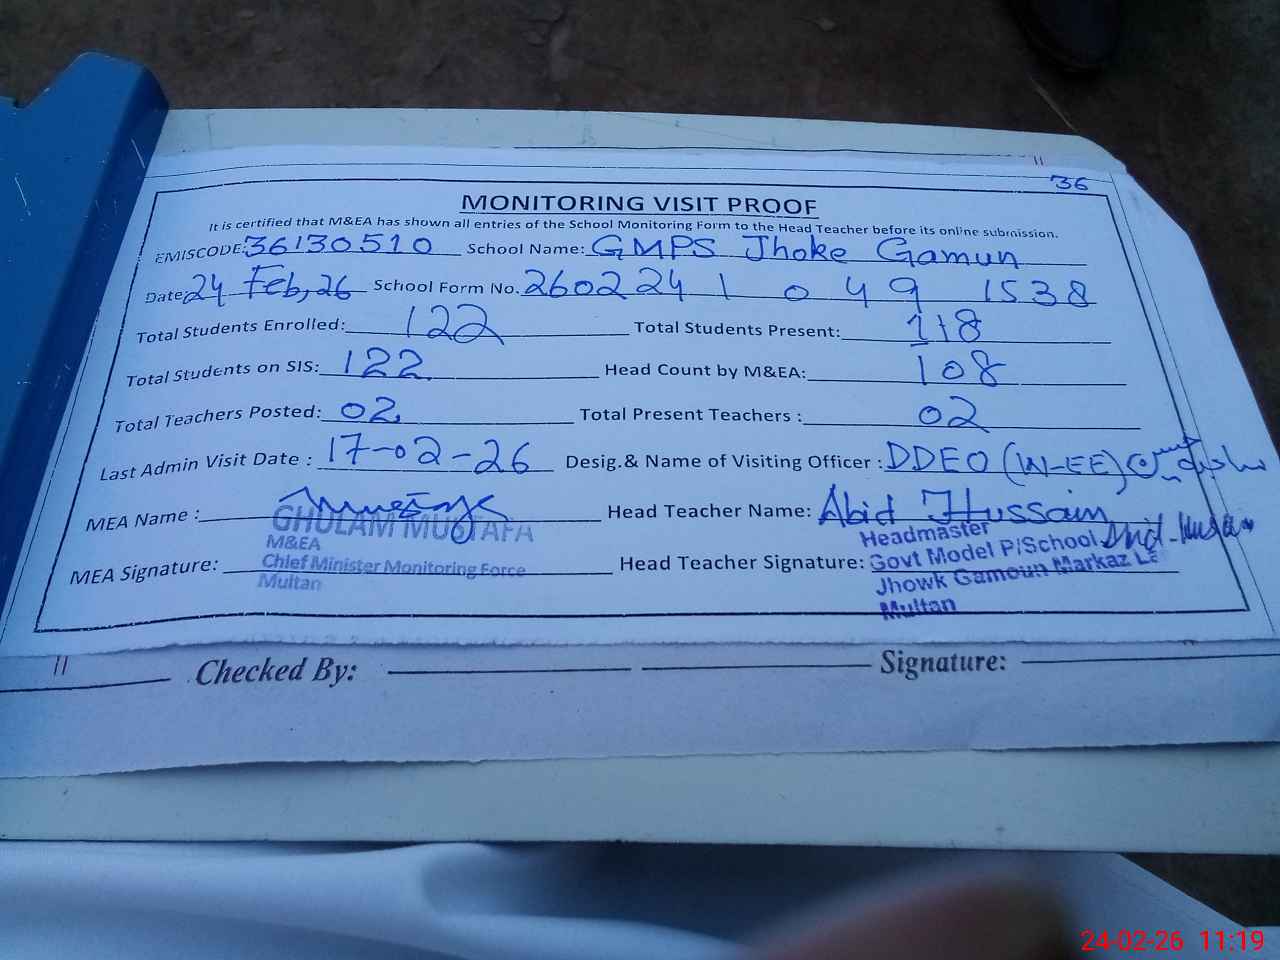 36
MONITORING VISIT PROOF
It is certified that M&EA has shown all entries of the School Monitoring Form to the Head Teacher before its online submission.
EMISCODE: 36130510 School Name: GMPS Jhoke Gamun
Date: 24 Feb, 26 School Form No. 260224 1 0 4 9 1538
Total Students Enrolled: 122 Total Students Present: 118
Total Students on SIS: 122 Head Count by M&EA: 108
Total Teachers Posted: 02 Total Present Teachers : 02
Last Admin Visit Date : 17-02-26 Desig.& Name of Visiting Officer : DDEO (W-EE)
MEA Name : GHULAM MUSTAFA Head Teacher Name: Abid Hussain
M&EA
Chief Minister Monitoring Force
Multan
MEA Signature: Head Teacher Signature:
Headmaster
Govt Model P/School
Jhowk Gamoun Markaz
Multan
Checked By: Signature:
24-02-26 11:19